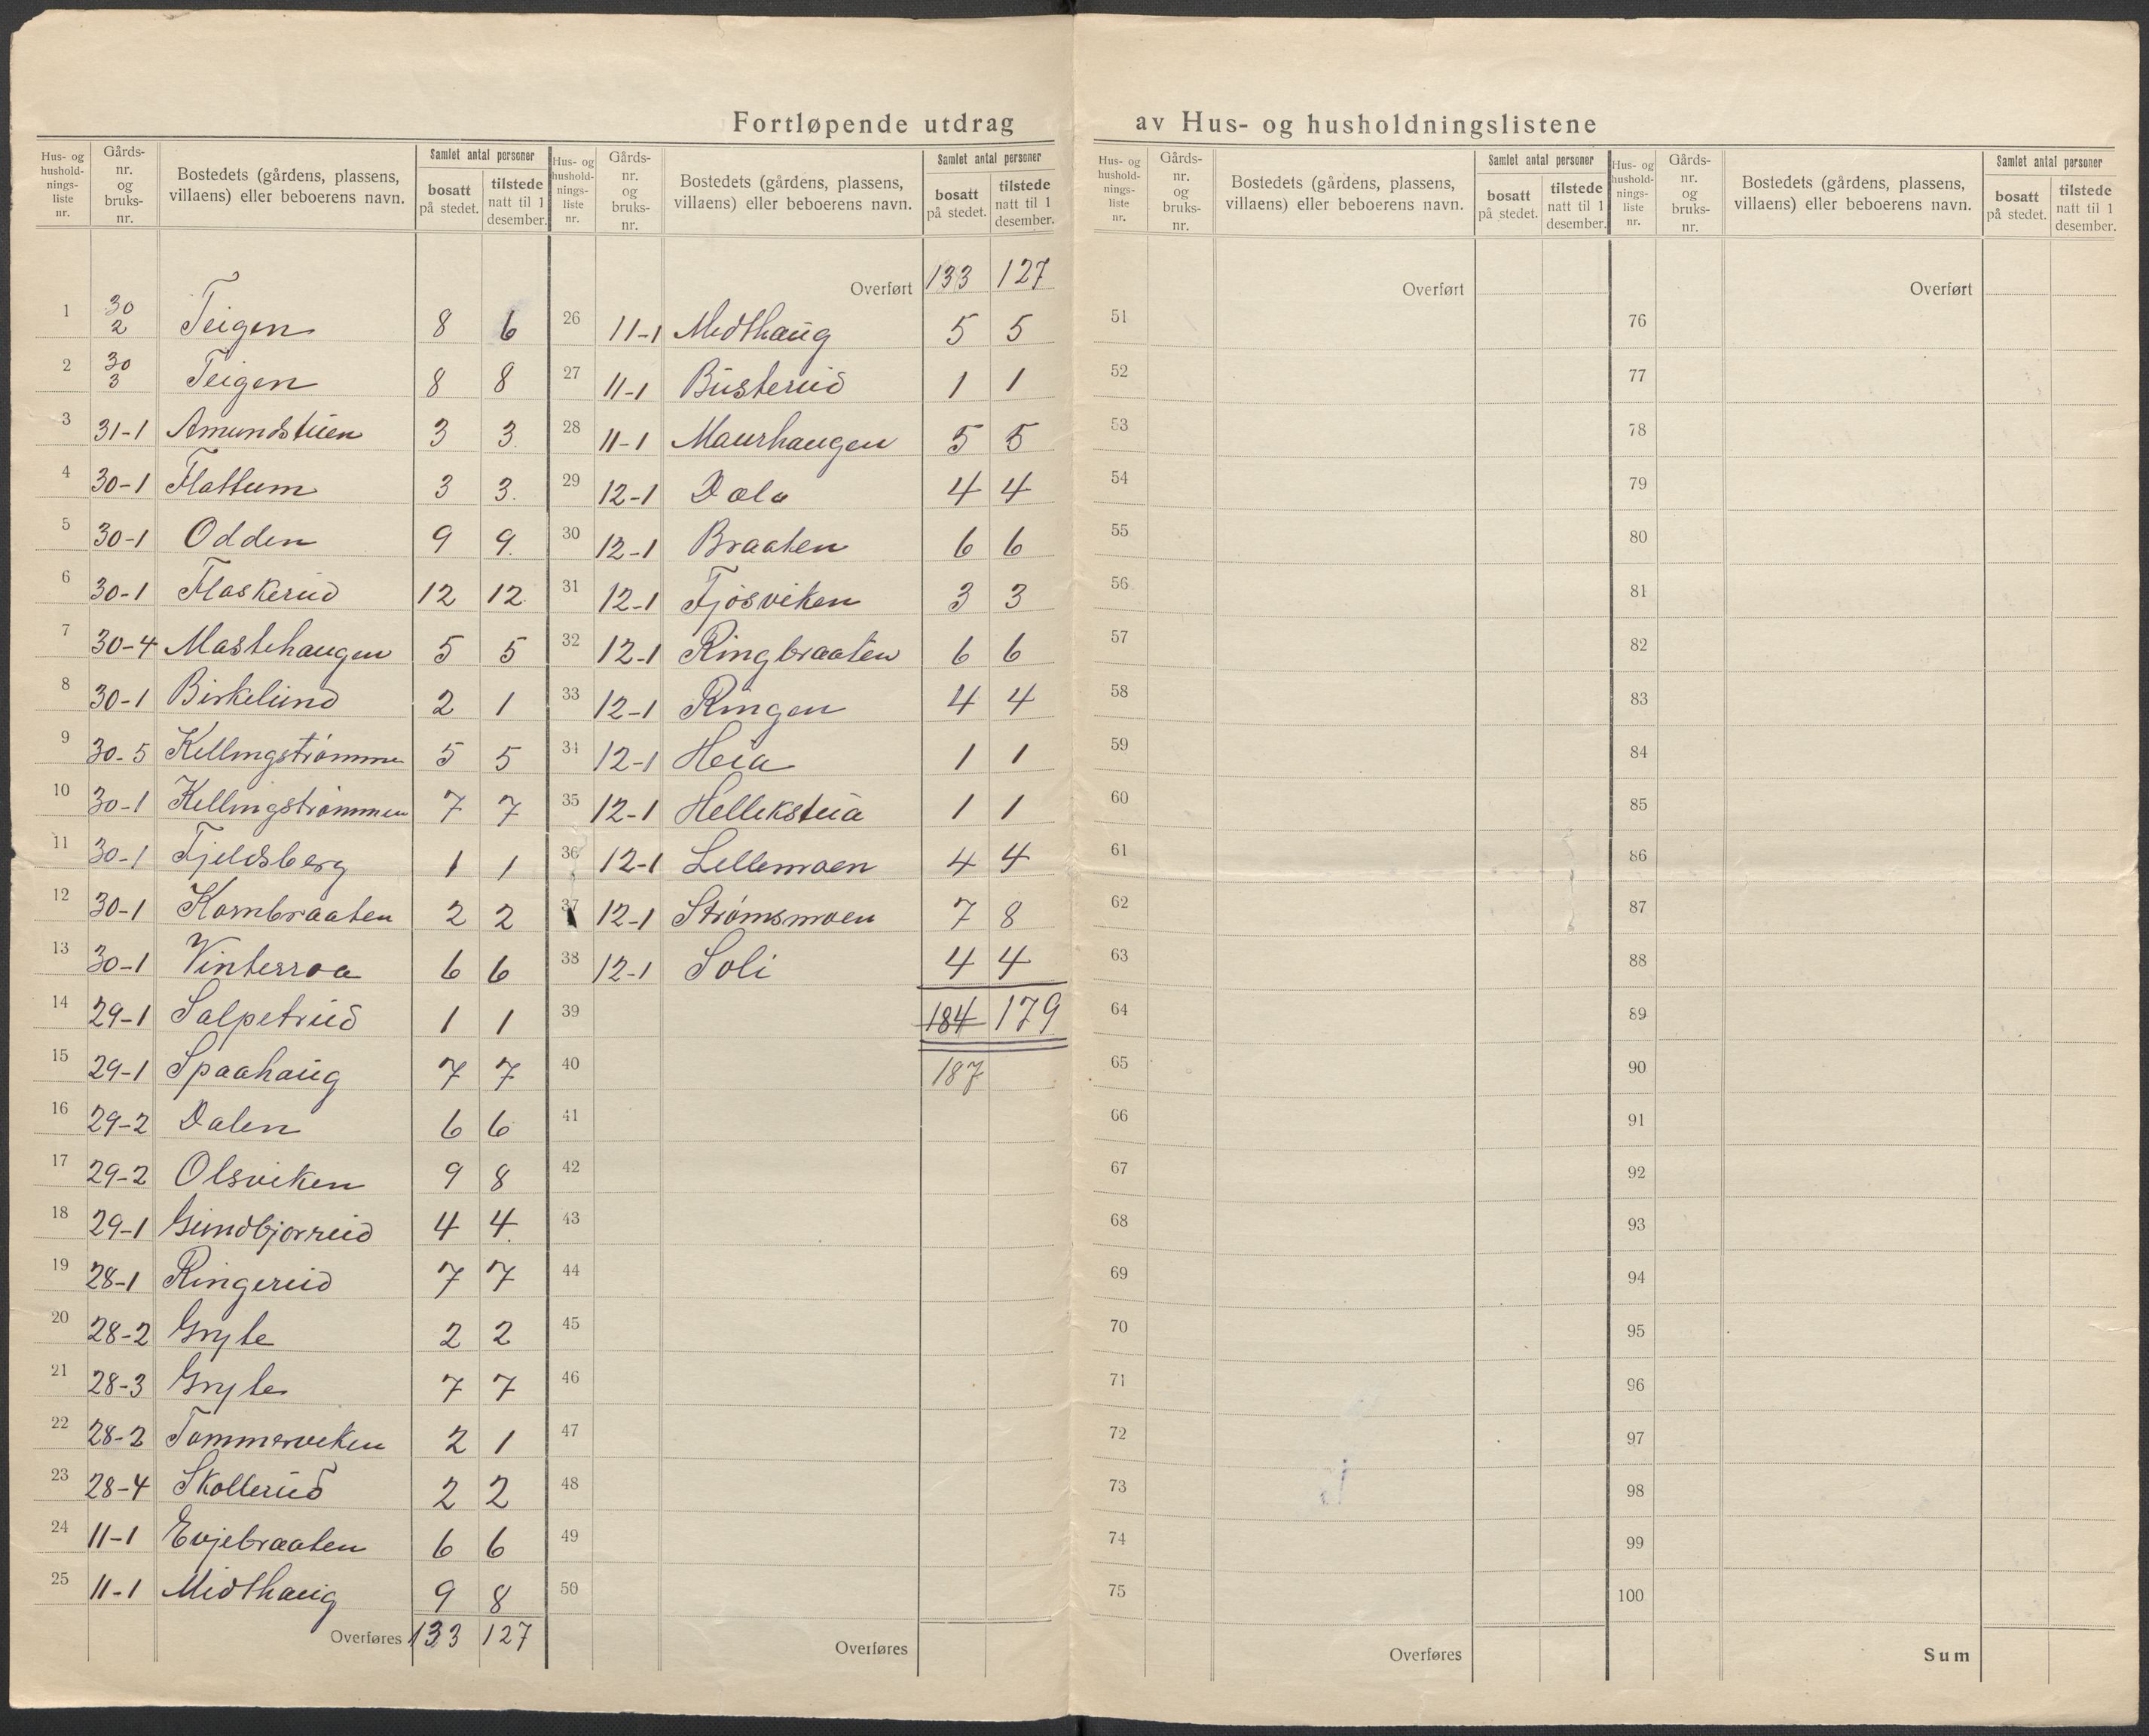 Fortløpende utdrag av Hus- og husholdningslistene
Hus- og hushold-nings-liste nr. | Gårds-nr. og bruks-nr. | Bostedets (gårdens, plassens, villaens) eller beboerens navn. | Samlet antal personer | bosatt på stedet. | tilstede natt til 1 desember.
1 30 2 Teigen 8 6
2 30 3 Teigen 8 8
3 31-1 Amundstuen 3 3
4 30-1 Flattum 3 3.
5 30-1 Odden 9 9.
6 30-1 Flaskerud 12 12
7 30-4 Mastehaugen 5 5
8 30-1 Birkelund 2 1
9 30-5 Killingstrømmen 5 5
10 30-1 Killingstrømmen 7 7
11 30-1 Fjeldsberg 1 1
12 30-1 Kornbraaten 2 2
13 30-1 Vinterroa 6 6
14 29-1 Salpetrud 1 1
15 29-1 Spaahaug 7 7
16 29-2 Dalen 6 6
17 29-2 Olsviken 9 8
18 29-1 Gundbjørrud 4 4.
19 28-1 Ringerud 7 7
20 28-2 Gryte 2 2
21 28-3 Gryte 7 7
22 28-2 Tømmerviken 2 1
23 28-4 Skollerud 2 2
24 11-1 Evjebraaten 6 6
25 11-1 Midthaug 9 8
Overføres 133 127
Hus- og hushold-nings-liste nr. | Gårds-nr. og bruks-nr. | Bostedets (gårdens, plassens, villaens) eller beboerens navn. | Samlet antal personer | bosatt på stedet. | tilstede natt til 1 desember.
Overført 133 127
26 11-1 Midthaug 5 5
27 11-1 Busterud 1 1
28 11-1 Maurhaugen 5 5
29 12-1 Dala 4 4
30 12-1 Braaten 6 6
31 12-1 Fjøsviken 3 3
32 12-1 Ringbraaten 6 6
33 12-1 Ringen 4 4
34 12-1 Heia 1 1
35 12-1 Hellikstua 1 1
36 12-1 Lillemoen 4 4
37 12-1 Strømsmoen 7 8
38 12-1 Soli 4 4
39 184 179
40 187
41
42
43
44
45
46
47
48
49
50
Overføres
Hus- og hushold-nings-liste nr. | Gårds-nr. og bruks-nr. | Bostedets (gårdens, plassens, villaens) eller beboerens navn. | Samlet antal personer | bosatt på stedet. | tilstede natt til 1 desember.
Overført
51
52
53
54
55
56
57
58
59
60
61
62
63
64
65
66
67
68
69
70
71
72
73
74
75
Overføres
Hus- og hushold-nings-liste nr. | Gårds-nr. og bruks-nr. | Bostedets (gårdens, plassens, villaens) eller beboerens navn. | Samlet antal personer | bosatt på stedet. | tilstede natt til 1 desember.
Overført
76
77
78
79
80
81
82
83
84
85
86
87
88
89
90
91
92
93
94
95
96
97
98
99
100
Sum